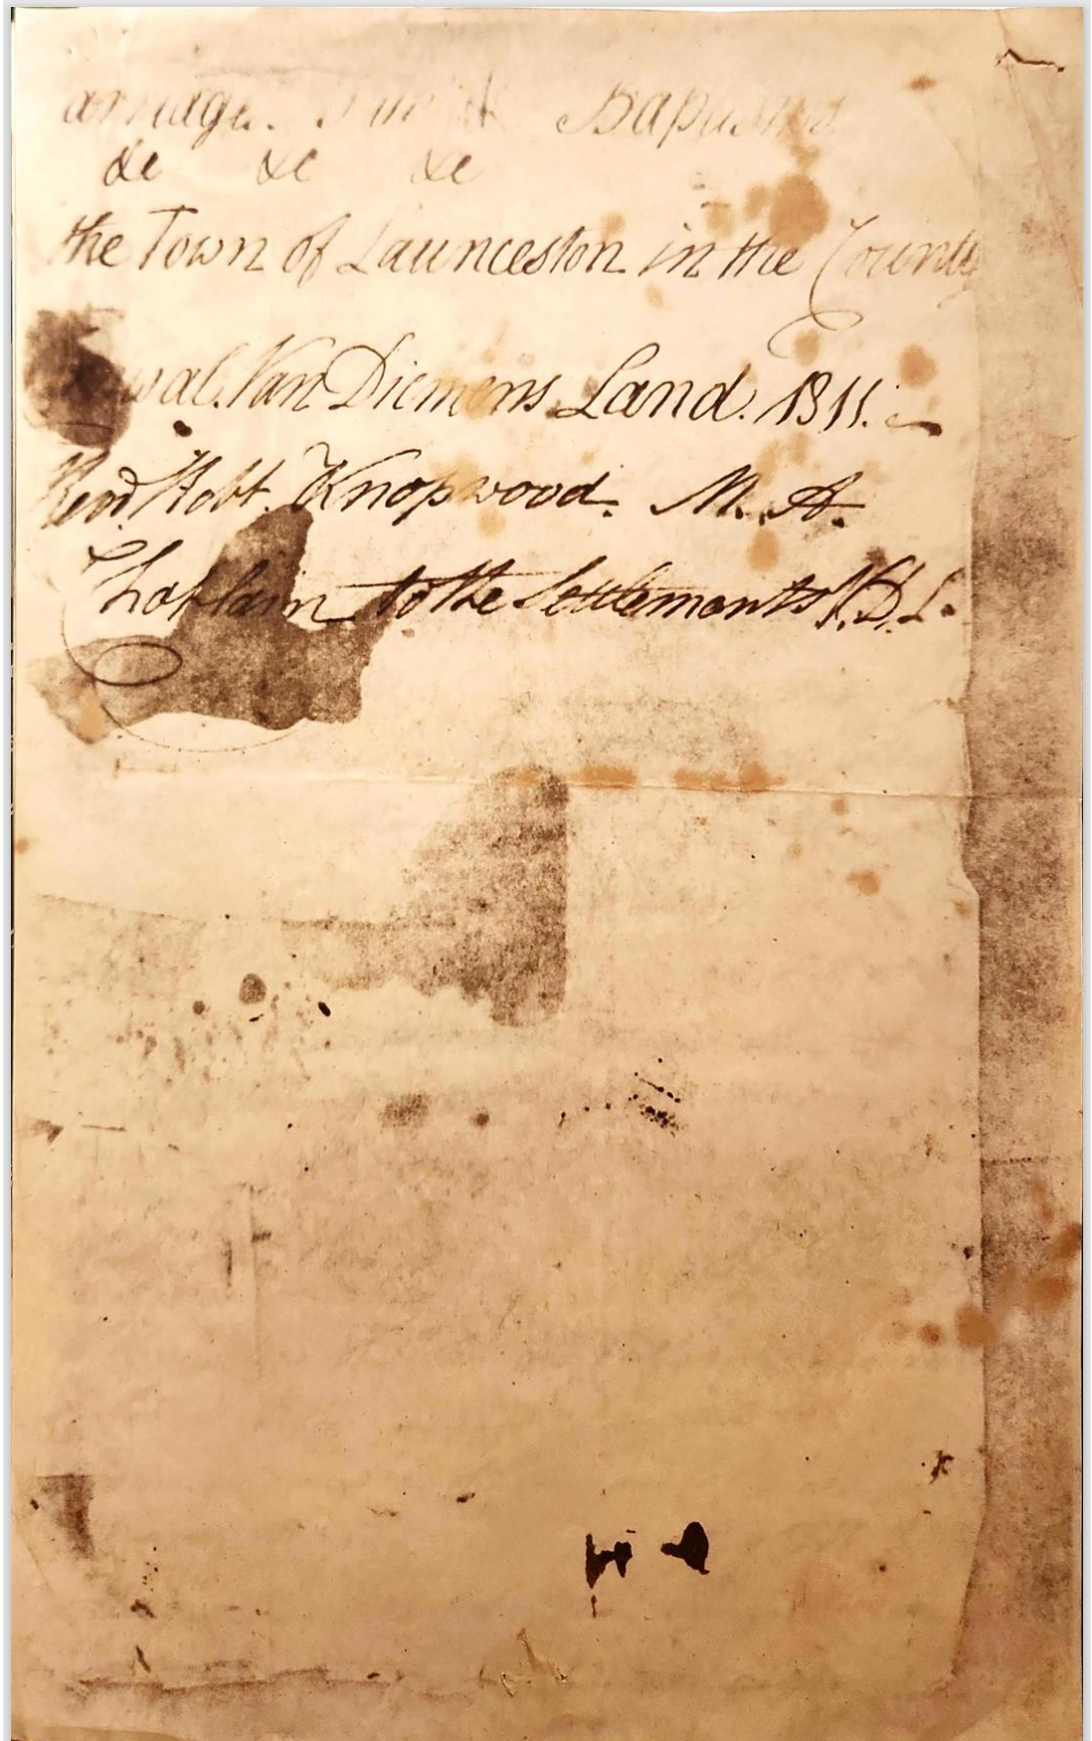 arriage. Baptisms
&c &c &c
the Town of Launceston in the County
wal. Van Diemens Land. 1811.
Revd. Robt. Knopwood. M. A.
Chaplain to the Settlements V. D. L.